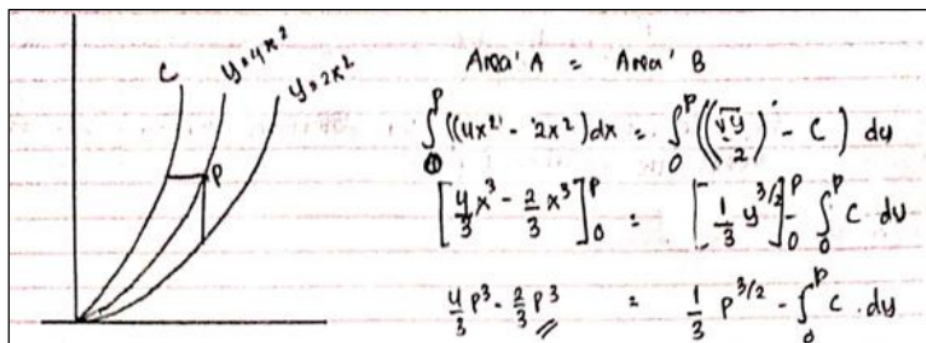 C
y = 4x²
y = 2x²
P
Area' A = Area' B
∫₀ᴾ ((4x² - 2x²) dx = ∫₀ᴾ ((√y/2) - C) dy
[4/3 x³ - 2/3 x³]₀ᴾ = [1/3 y^(3/2)]₀ᴾ - ∫₀ᴾ C dy
4/3 p³ - 2/3 p³ = 1/3 p^(3/2) - ∫₀ᴾ C . dy